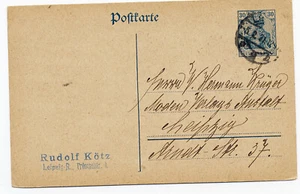 Postkarte
30 30
Herrn W. Hermann Krüger
Moden Verlags Anstalt
Leipzig
Arndt-Str. 37.
Rudolf Kötz
Leipzig-R.,